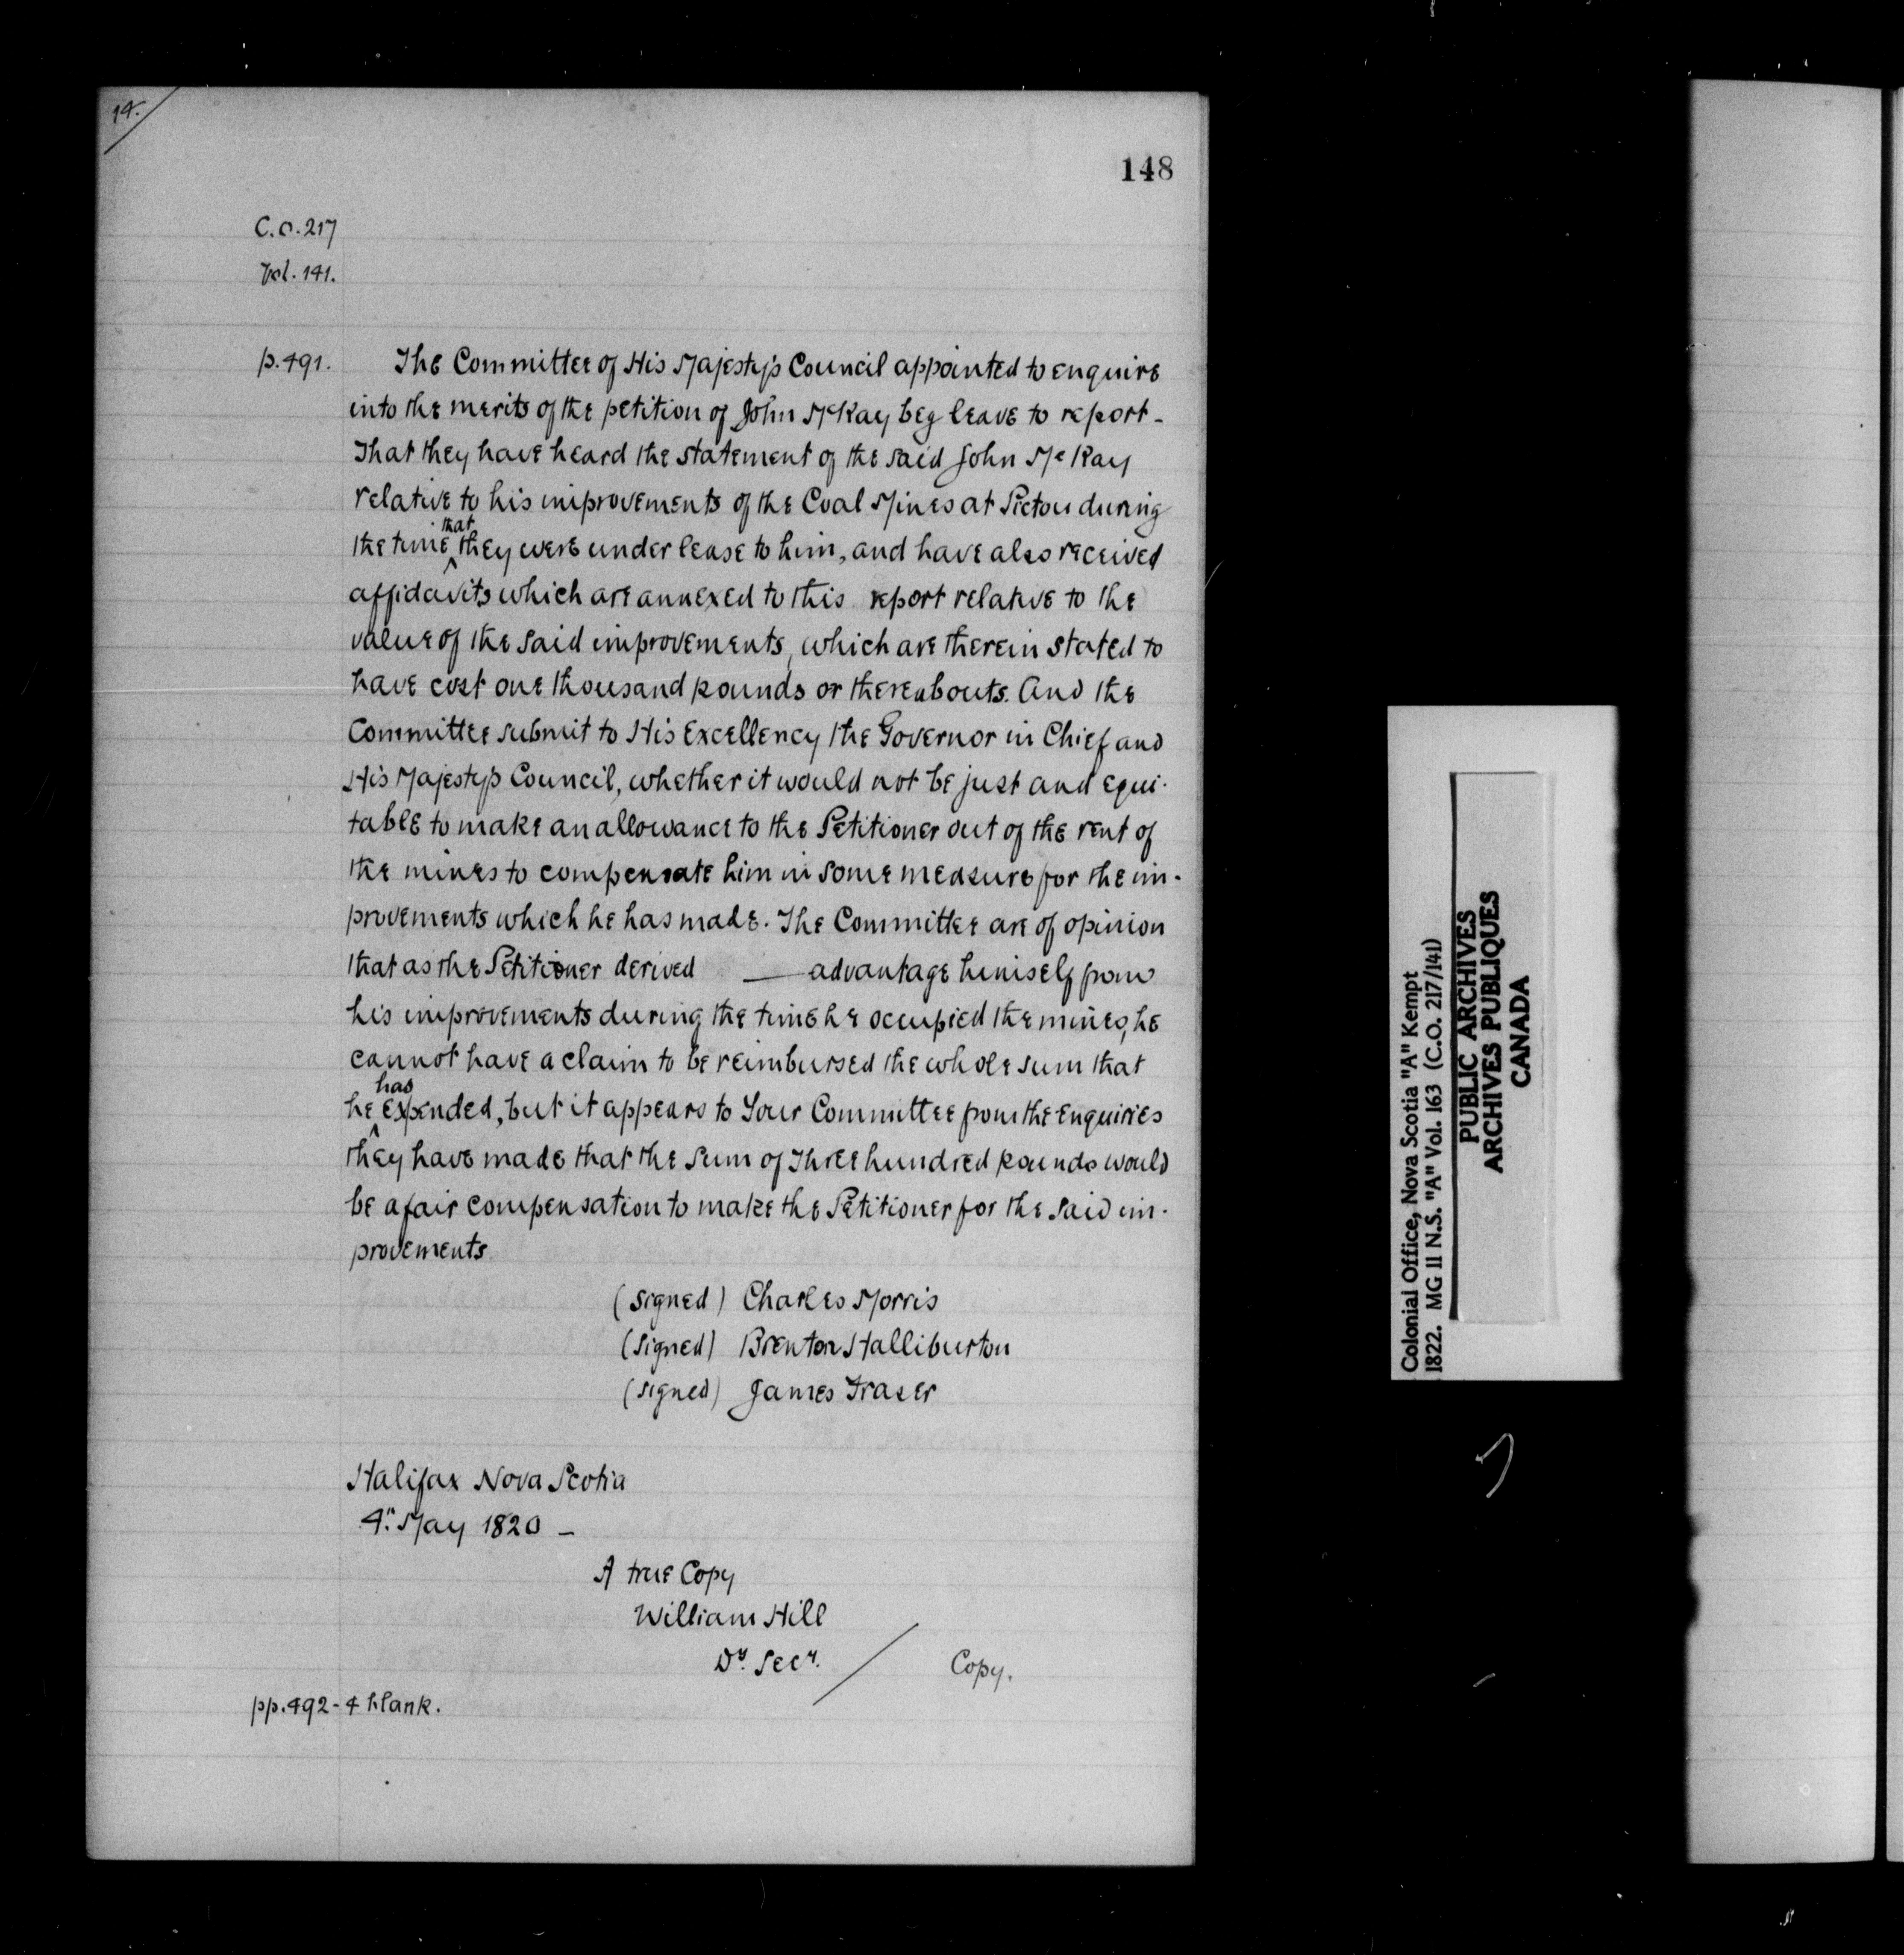 14.
148
C.O. 217
Vol. 141.
p. 491. The Committee of His Majesty's Council appointed to enquire
into the merits of the petition of John McKay beg leave to report -
That they have heard the statement of the said John Mc Kay
relative to his improvements of the Coal Mines at Pictou during
the time that they were under lease to him, and have also received
affidavits which are annexed to this report relative to the
value of the said improvements, which are therein stated to
have cost one thousand pounds or thereabouts. And the
Committee submit to His Excellency the Governor in Chief and
His Majesty's Council, whether it would not be just and equi-
table to make an allowance to the Petitioner out of the rent of
the mines to compensate him in some measure for the im-
provements which he has made. The Committee are of opinion
that as the Petitioner derived — advantage himself from
his improvements during the time he occupied the mines, he
cannot have a claim to be reimbursed the whole sum that
he has expended, but it appears to Your Committee from the Enquiries
they have made that the Sum of Three hundred pounds would
be a fair compensation to make the Petitioner for the said im-
provements
(signed) Charles Morris
(signed) Brenton Halliburton
(signed) James Fraser
Halifax Nova Scotia
4th May 1820 -
A true Copy
William Hill
Dy. Secy.
Copy.
pp. 492-4 blank.
Colonial Office, Nova Scotia "A" Kempt
1822. MG 11 N.S. "A" Vol. 163 (C.O. 217/141)
PUBLIC ARCHIVES
ARCHIVES PUBLIQUES
CANADA